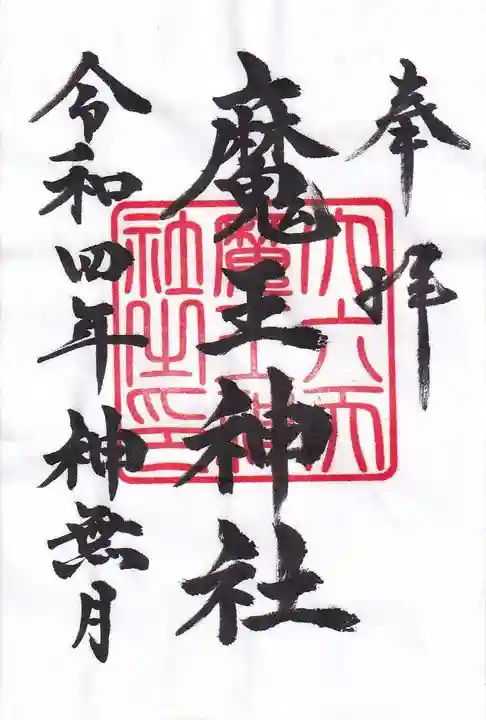 奉拝
魔王神社
令和四年神無月
大六天
魔王神
社之印